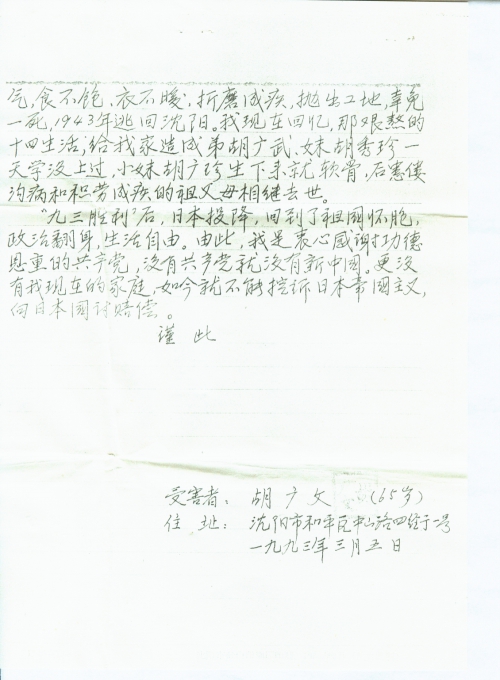 气,食不饱,衣不暖,折磨成疾,抛出工地,幸免
一死,1943年逃回沈阳。我现在回忆,那艰熬的
十四生活,给我家造成弟胡广武、妹胡秀珍一
天学没上过,小妹胡广珍生下来就软骨,后患偻
沟病和积劳成疾的祖父母相继去世。
“九三胜利”后,日本投降,回到了祖國怀胞,
政治翻身,生活自由。由此,我是衷心感谢功德
恩重的共产党,没有共产党就没有新中國。更没
有我现在的家庭,如今就不能控诉日本帝國主义,
向日本國讨赔偿。
谨此
受害者:胡广文(65岁)
住址:沈阳市和平区中山路四经于2号
一九九三年三月五日